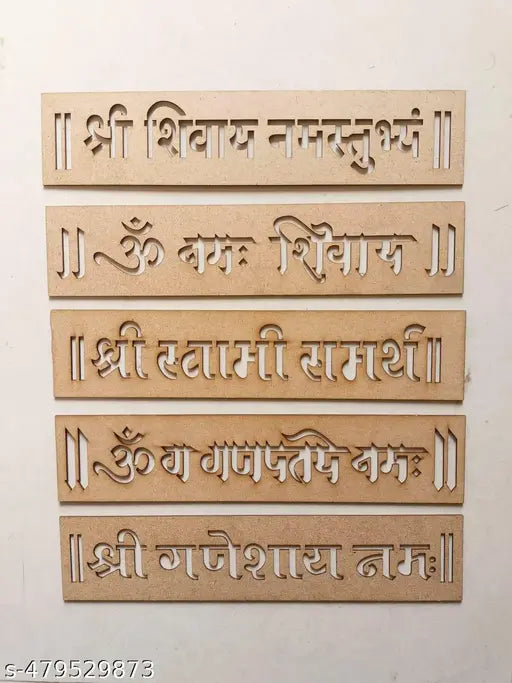 || श्री शिवाय नमस्तुभ्यं ||
|| ॐ नमः शिवाय ||
|| श्री स्वामी समर्थ ||
|| ॐ ग गणपतये नमः ||
|| श्री गणेशाय नमः ||
s-479529873